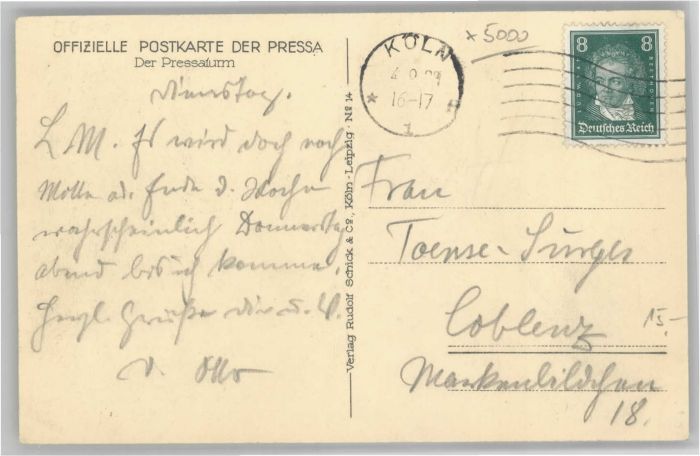 OFFIZIELLE POSTKARTE DER PRESSA
Der Pressaturm
Dienstag.
L. M. Es wird doch noch
Mitte od. Ende d. Woche
wahrscheinlich Donnerstag
abend bis ich komme.
Herzl. Grüße dir u.
v. Otto
Verlag Rudolf Schick & Co., Köln-Leipzig · No 14
KÖLN
16-17
1
× 5000
8 8
LUDWIG VAN BEETHOVEN
Deutsches Reich
Frau
Toense-Sürges
Coblenz
15.-
Markenbildchen
18.